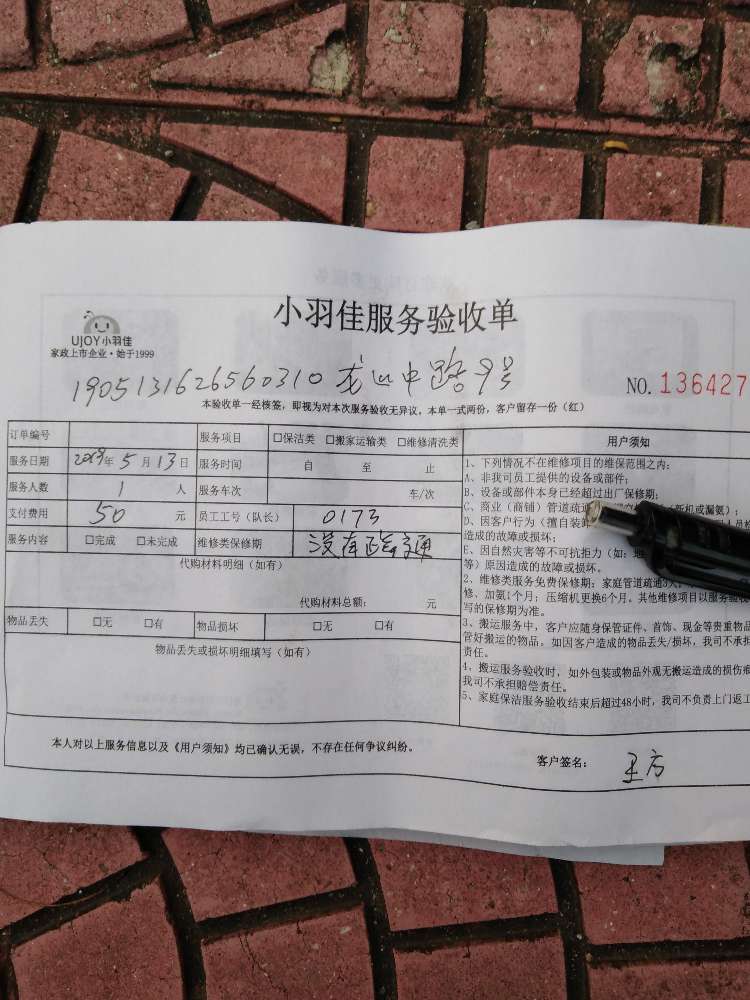 小羽佳服务验收单
UJOY小羽佳
家政上市企业·始于1999
1905131626560310 龙山中路9号
NO. 136427
本验收单一经核签，即视为对本次服务验收无异议，本单一式两份，客户留存一份（红）
订单编号 服务项目 □保洁类 □搬家运输类 □维修清洗类
服务日期 2019年 5 月 13 日 服务时间 自 至 止
服务人数 1 人 服务车次 车/次
支付费用 50 元 员工工号（队长） 0173
服务内容 □完成 □未完成 维修类保修期 没有疏通
代购材料明细（如有）
代购材料总额： 元
物品丢失 □无 □有 物品损坏 □无 □有
物品丢失或损坏明细填写（如有）
用户须知
1、下列情况不在维修项目的维保范围之内：
A、非我司员工提供的设备或部件；
B、设备或部件本身已经超过出厂保修期；
C、商业（商铺）管道疏通 新机或漏氨）；
D、因客户行为（擅自装卸
造成的故障或损坏；
E、因自然灾害等不可抗拒力（如：地
等）原因造成的故障或损坏。
2、维修类服务免费保修期：家庭管道疏通3天，
修、加氨1个月；压缩机更换6个月。其他维修项目以服务验收
写的保修期为准。
3、搬运服务中，客户应随身保管证件、首饰、现金等贵重物品
管好搬运的物品。如因客户造成的物品丢失/损坏，我司不承担
责任。
4、搬运服务验收时，如外包装或物品外观无搬运造成的损伤痕
我司不承担赔偿责任。
5、家庭保洁服务验收结束后超过48小时，我司不负责上门返工
本人对以上服务信息以及《用户须知》均已确认无误，不存在任何争议纠纷。
客户签名： 王方